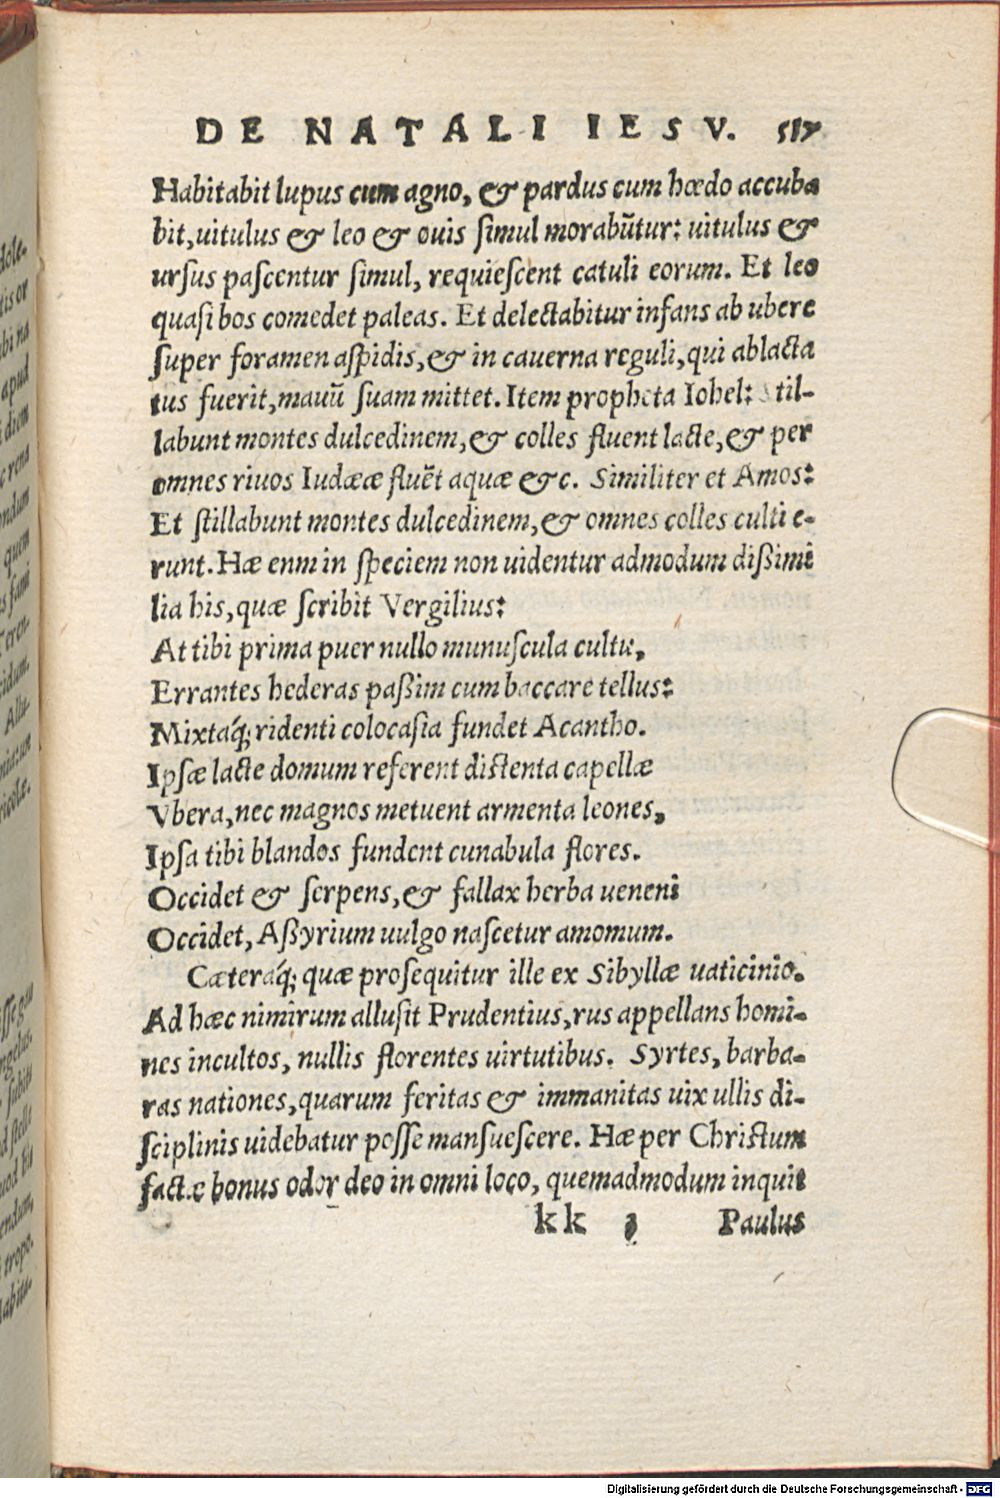 DE NATALI IESV. 517
Habitabit lupus cum agno, & pardus cum hœdo accuba
bit, uitulus & leo & ouis simul morabũtur: uitulus &
ursus pascentur simul, requiescent catuli eorum. Et leo
quasi bos comedet paleas. Et delectabitur infans ab ubere
super foramen aspidis, & in cauerna reguli, qui ablacta
tus fuerit, mauũ suam mittet. Item propheta Iohel: Stil-
labunt montes dulcedinem, & colles fluent lacte, & per
omnes riuos Iudææ fluẽt aquæ &c. Similiter et Amos:
Et stillabunt montes dulcedinem, & omnes colles culti e-
runt. Hæ enm in speciem non uidentur admodum dißimi
lia his, quæ scribit Vergilius:
At tibi prima puer nullo munuscula cultu,
Errantes hederas paßim cum baccare tellus:
Mixtaq́; ridenti colocasia fundet Acantho.
Ipsæ lacte domum referent distenta capellæ
Vbera, nec magnos metuent armenta leones,
Ipsa tibi blandos fundent cunabula flores.
Occidet & serpens, & fallax herba ueneni
Occidet, Aßyrium uulgo nascetur amomum.
Cæteraq́; quæ prosequitur ille ex Sibyllæ uaticinio.
Ad hæc nimirum allusit Prudentius, rus appellans homi-
nes incultos, nullis florentes uirtutibus. Syrtes, barba-
ras nationes, quarum feritas & immanitas uix ullis di-
sciplinis uidebatur posse mansuescere. Hæ per Christum
factæ bonus odor deo in omni loco, quemadmodum inquit
kk 3 Paulus
dole-
tis or
bi na
apud
i diem
c rens
ndum
quem
s fami
Teren-
cidum.
Aliu-
nia: un
ricolæ.
sse geu
ngelus,
subiti
d stelle
uod his
endum,
tropo.
Habita-
Digitalisierung gefördert durch die Deutsche Forschungsgemeinschaft - DFG